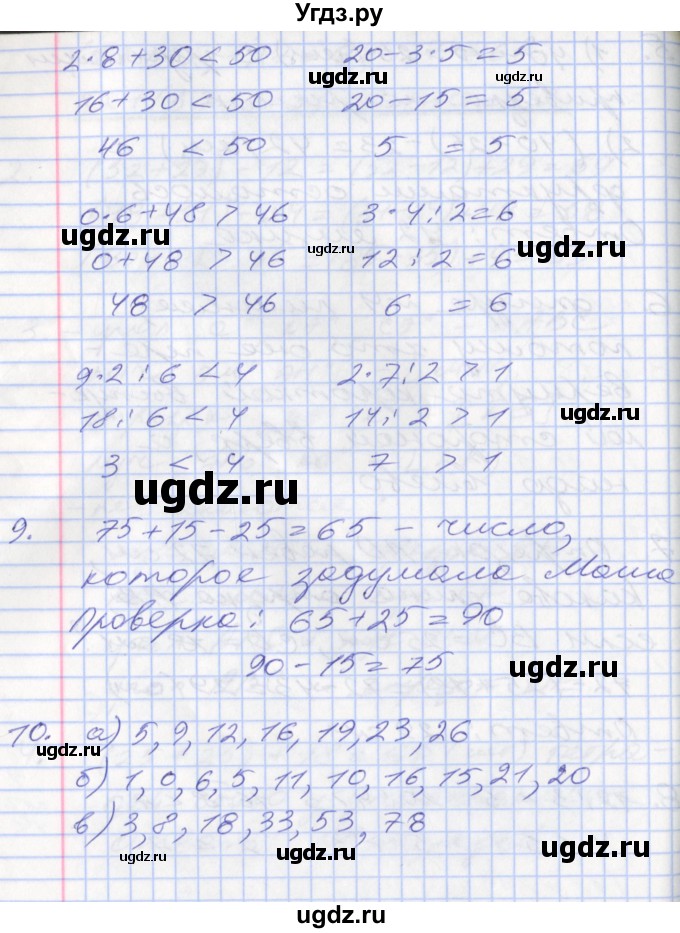 Угдз.ру
2·8+30<50 20-3·5=5
16+30<50 20-15=5
46 <50 5 =5
0·6+48>46 3·4:2=6
0+48 >46 12:2=6
48 >46 6 =6
9·2:6<4 2·7:2>1
18:6<4 14:2>1
3 <4 7 >1
9. 75+15-25=65 - число,
которое задумала Маша
Проверка: 65+25=90
90-15=75
10. а) 5, 9, 12, 16, 19, 23, 26
б) 1, 0, 6, 5, 11, 10, 16, 15, 21, 20
в) 3, 8, 18, 33, 53, 78
ugdz.ru
ugdz.ru
ugdz.ru
ugdz.ru
ugdz.ru
ugdz.ru
ugdz.ru
ugdz.ru
ugdz.ru
ugdz.ru
ugdz.ru
ugdz.ru
ugdz.ru